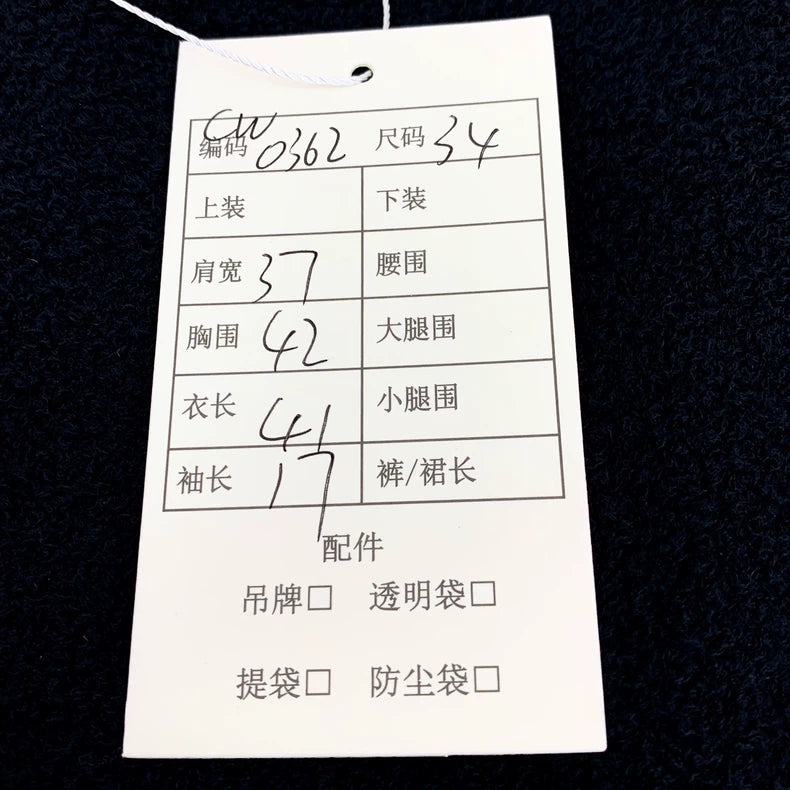 CW
编码 0362 尺码 34
上装 下装
肩宽 37 腰围
胸围 42 大腿围
衣长 41 小腿围
袖长 17 裤/裙长
配件
吊牌□ 透明袋□
提袋□ 防尘袋□